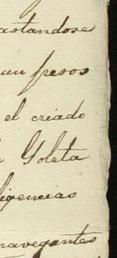 astandose
un pesos
el criado
Goleta
ligencias
navegantes